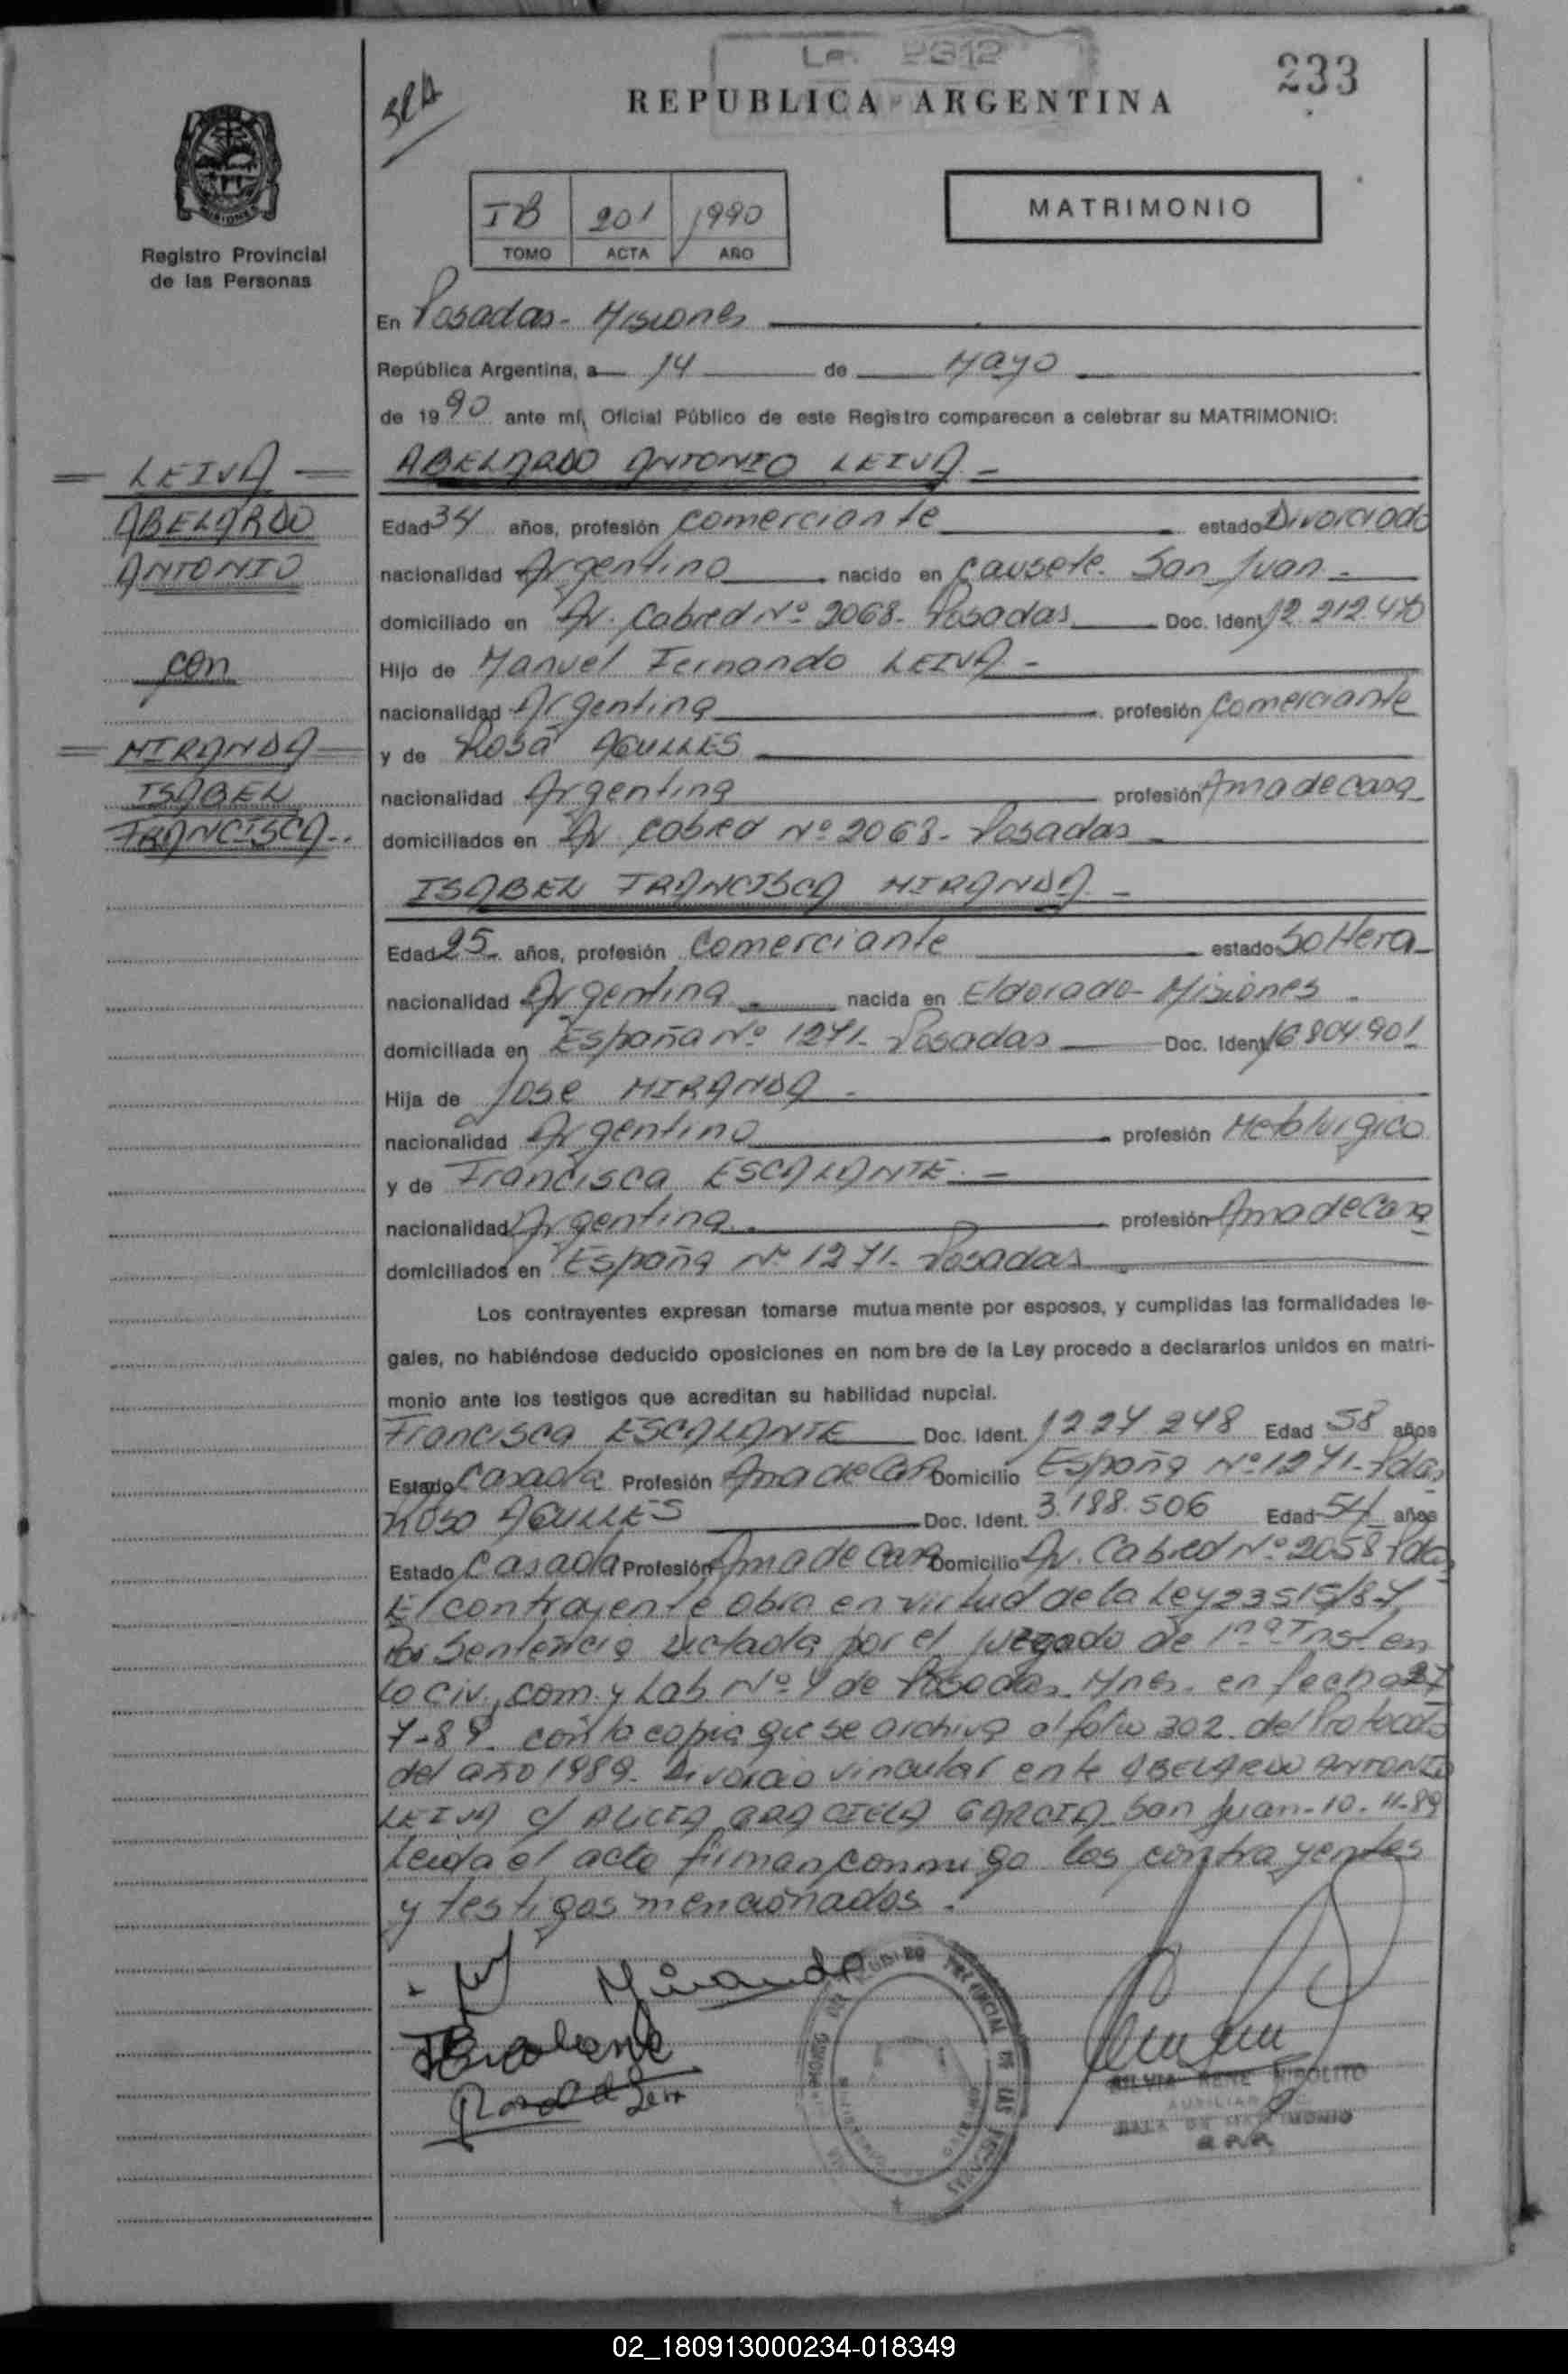 233
REPUBLICA ARGENTINA
MISIONES
Registro Provincial
de las Personas
IB 201 1990
TOMO ACTA AÑO
MATRIMONIO
En Posadas - Misiones
República Argentina, a 14 de Mayo
de 1990 ante mí, Oficial Público de este Registro comparecen a celebrar su MATRIMONIO:
LEIVA
ABELARDO
ANTONIO
con
MIRANDA
ISABEL
FRANCISCA
ABELARDO ANTONIO LEIVA -
Edad 34 años, profesión comerciante estado Divorciado
nacionalidad Argentino nacido en Causete - San Juan -
domiciliado en Av. Cabred Nº 2068 - Posadas Doc. Ident. 12.212.470
Hijo de Manuel Fernando LEIVA -
nacionalidad Argentina profesión Comerciante
y de Rosa AGULLES
nacionalidad Argentina profesión Ama de casa
domiciliados en Av Cabred Nº 2068 - Posadas
ISABEL FRANCISCA MIRANDA -
Edad 25 años, profesión Comerciante estado Soltera
nacionalidad Argentina nacida en Eldorado - Misiones
domiciliada en España Nº 1271 - Posadas Doc. Ident. 16.804.901
Hija de Jose MIRANDA -
nacionalidad Argentino profesión Metalurgico
y de Francisca ESCALANTE -
nacionalidad Argentina profesión Ama de Casa
domiciliados en España Nº 1271 - Posadas
Los contrayentes expresan tomarse mutuamente por esposos, y cumplidas las formalidades le-
gales, no habiéndose deducido oposiciones en nombre de la Ley procedo a declararlos unidos en matri-
monio ante los testigos que acreditan su habilidad nupcial.
Francisca ESCALANTE Doc. Ident. 1.227.248 Edad 58 años
Estado Casada Profesión Ama de Casa Domicilio España Nº 1271 - Pdas
Rosa AGULLES Doc. Ident. 3.188.506 Edad 54 años
Estado Casada Profesión Ama de Casa Domicilio Av. Cabred Nº 2058 Pdas
El contrayente obra en virtud de la Ley 23515/87,
Por Sentencia dictada por el juzgado de 1ra Inst en
lo Civ., Com. y Lab Nº 4 de Posadas. Mnes. en fecha 27
7-89. con la copia que se archiva al folio 302 del Protocolo
del año 1989. Divorcio vincular entre ABELARDO ANTONIO
LEIVA c/ ALICIA GRACIELA GARCIA San Juan - 10-11-89
Leida el acta firman conmigo los contrayentes
y testigos mencionados.
Miranda
SILVIA RENE HIPOLITO
AUXILIAR
SALA DE MATRIMONIO
02_180913000234-018349